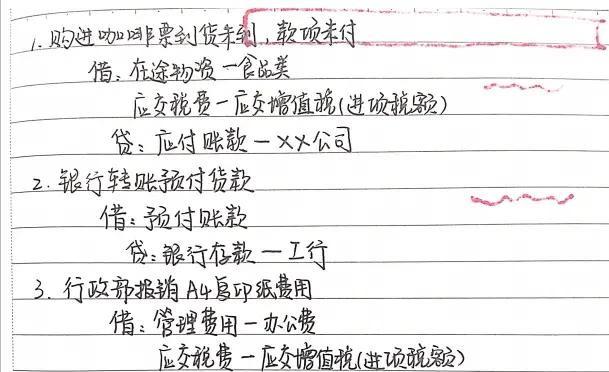 1. 购进咖啡票到货未到,款项未付
借:在途物资—食品类
应交税费—应交增值税(进项税额)
贷:应付账款—XX公司
2. 银行转账预付货款
借:预付账款
贷:银行存款—工行
3. 行政部报销A4复印纸费用
借:管理费用—办公费
应交税费—应交增值税(进项税额)